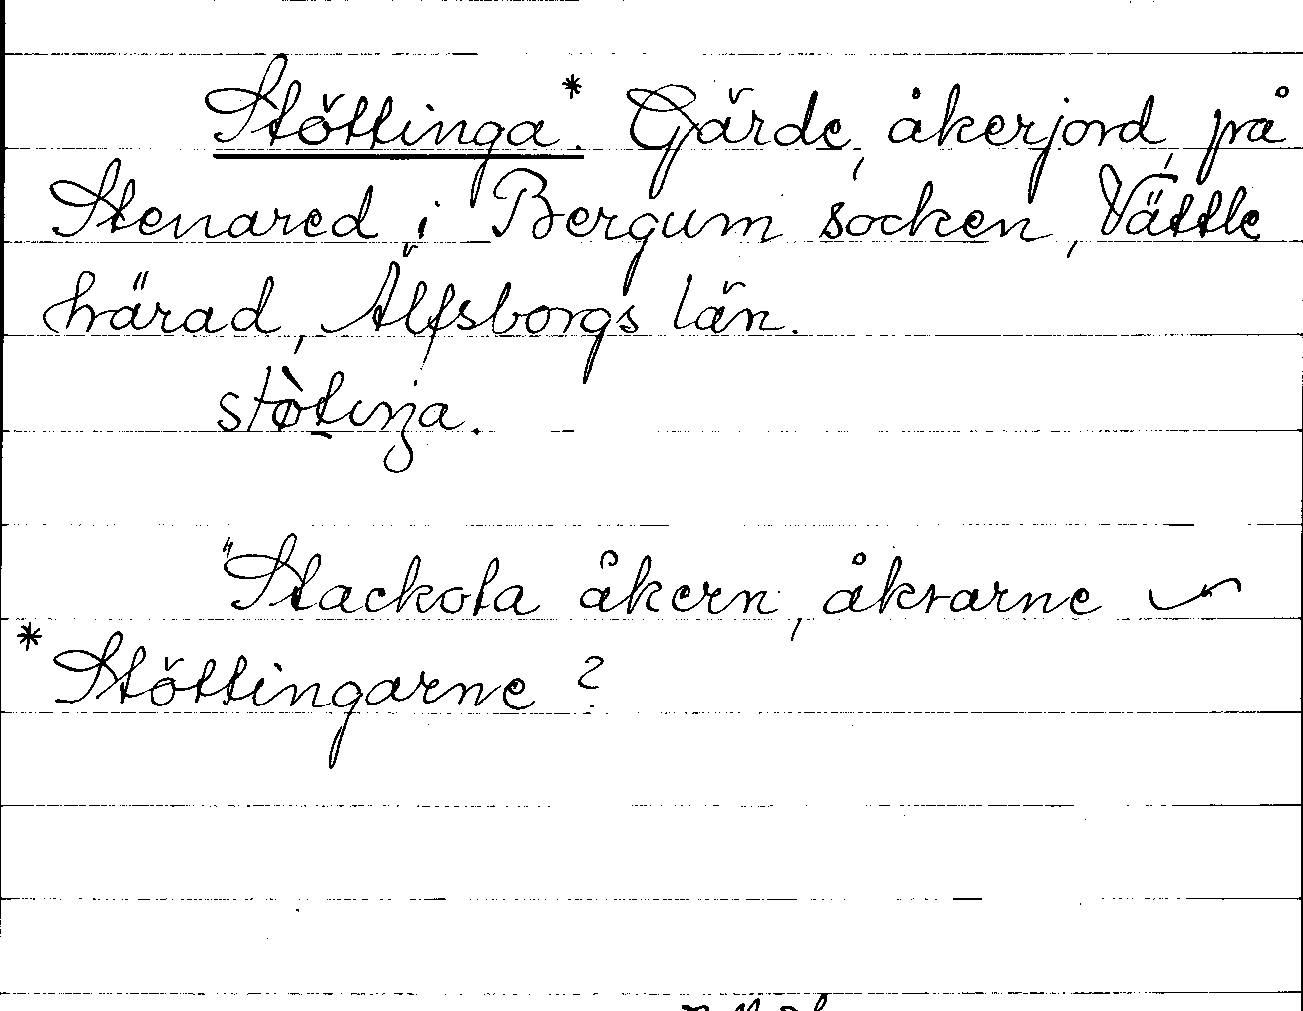 Stöttinga.* Gärde, åkerjord, på
Stenared i Bergum socken, Vättle
härad, Älfsborgs län.
stòt̠iŋa.
"Stackota åkern, åkrarne
* Stöttingarne?